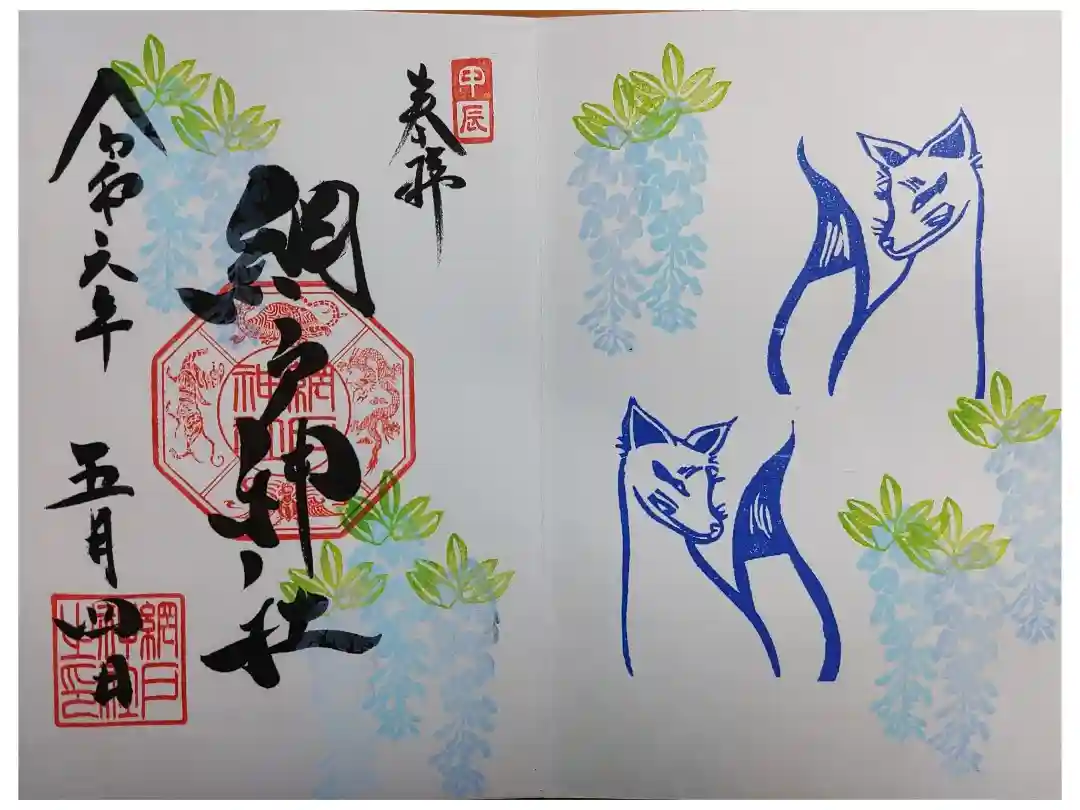 甲辰
奉拝
網戸神社
網戸神社
令和六年
五月四日
網戸神社之印